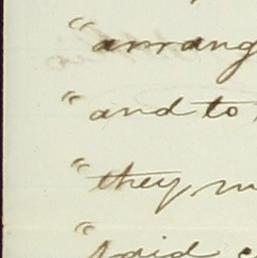 "arrang
"and to
"they, m
"said